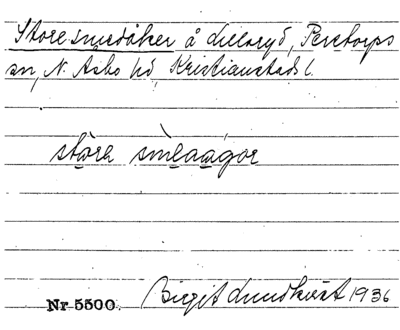 Store smedåker å Lillaryd, Perstorps
sn, N. Åsbo hd, Kristianstads l.
störe smeaågor
Nr 5500. Birgit Lundkvist 1936